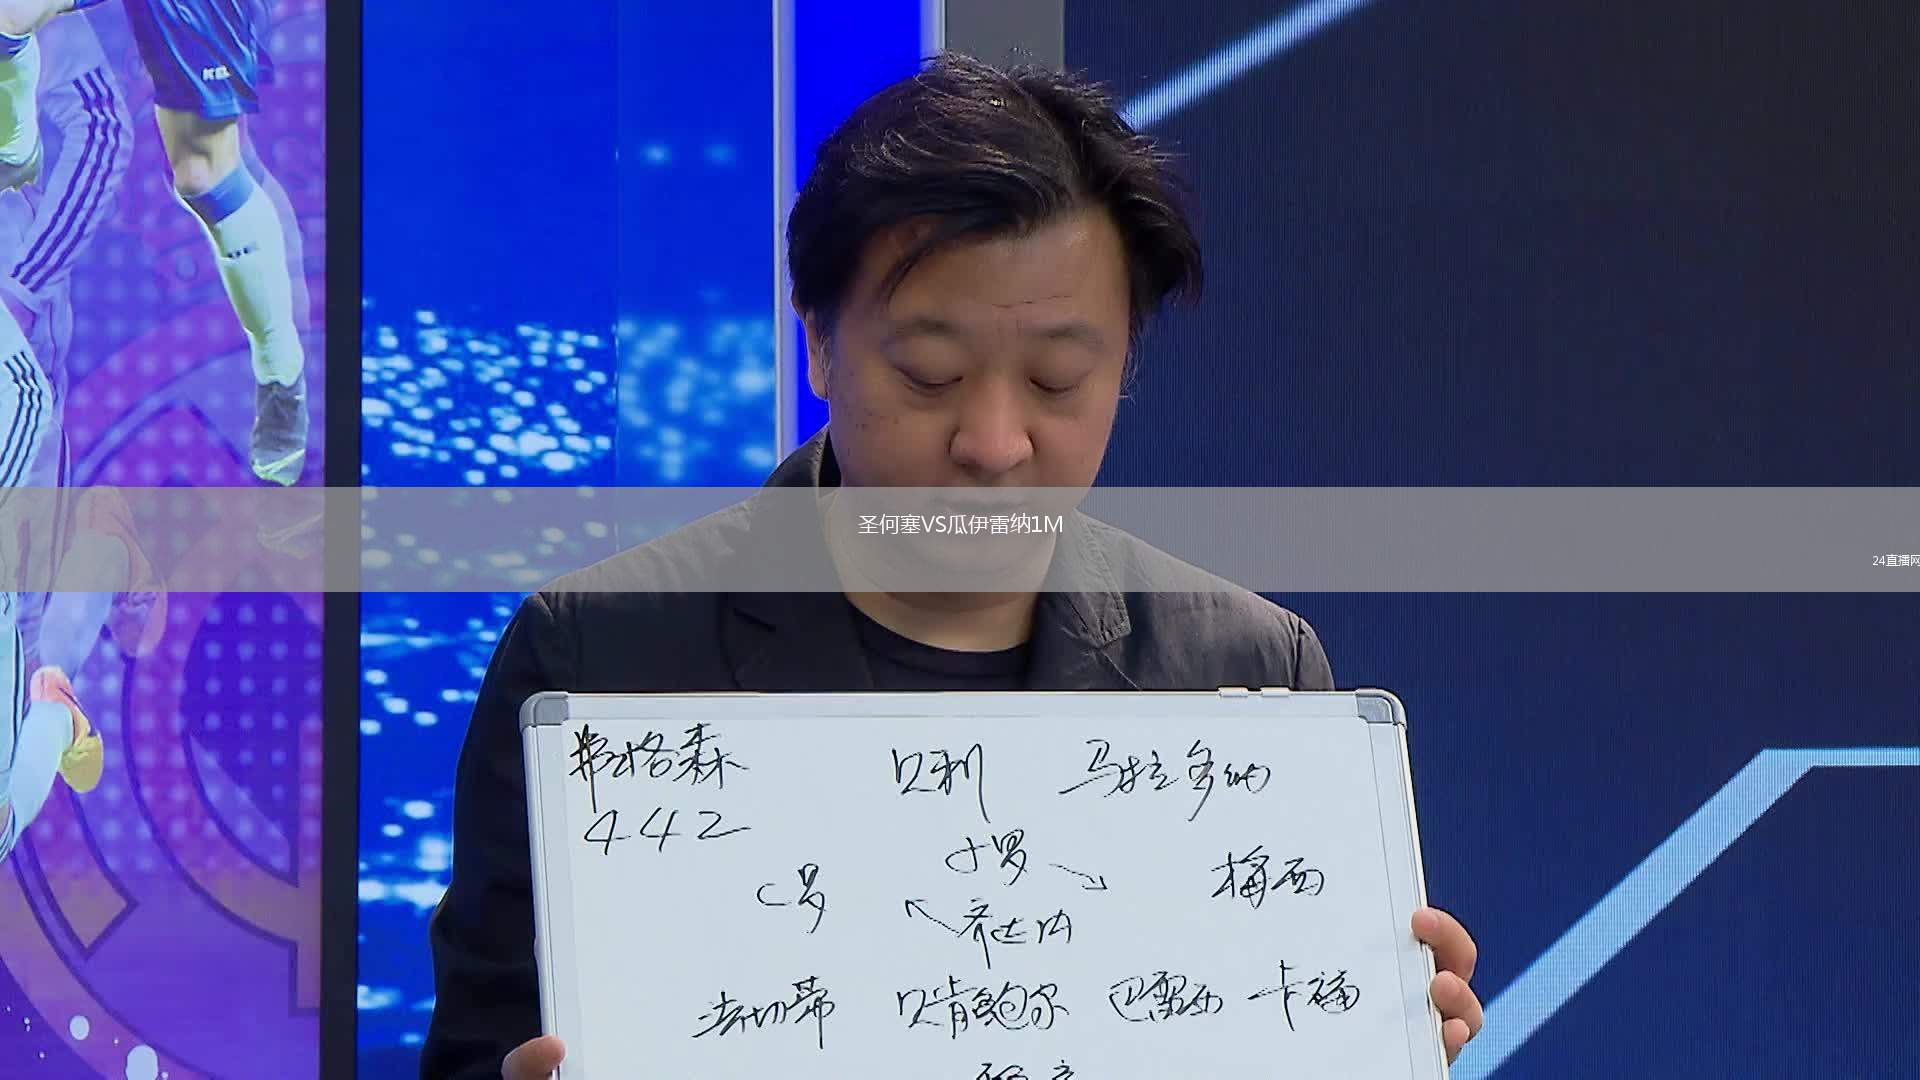 圣何塞VS瓜伊雷纳1M
24直播网
弗格森 贝利 马拉多纳
442
小罗
C罗 梅西
齐达内
法切蒂 贝肯鲍尔 巴雷西 卡福